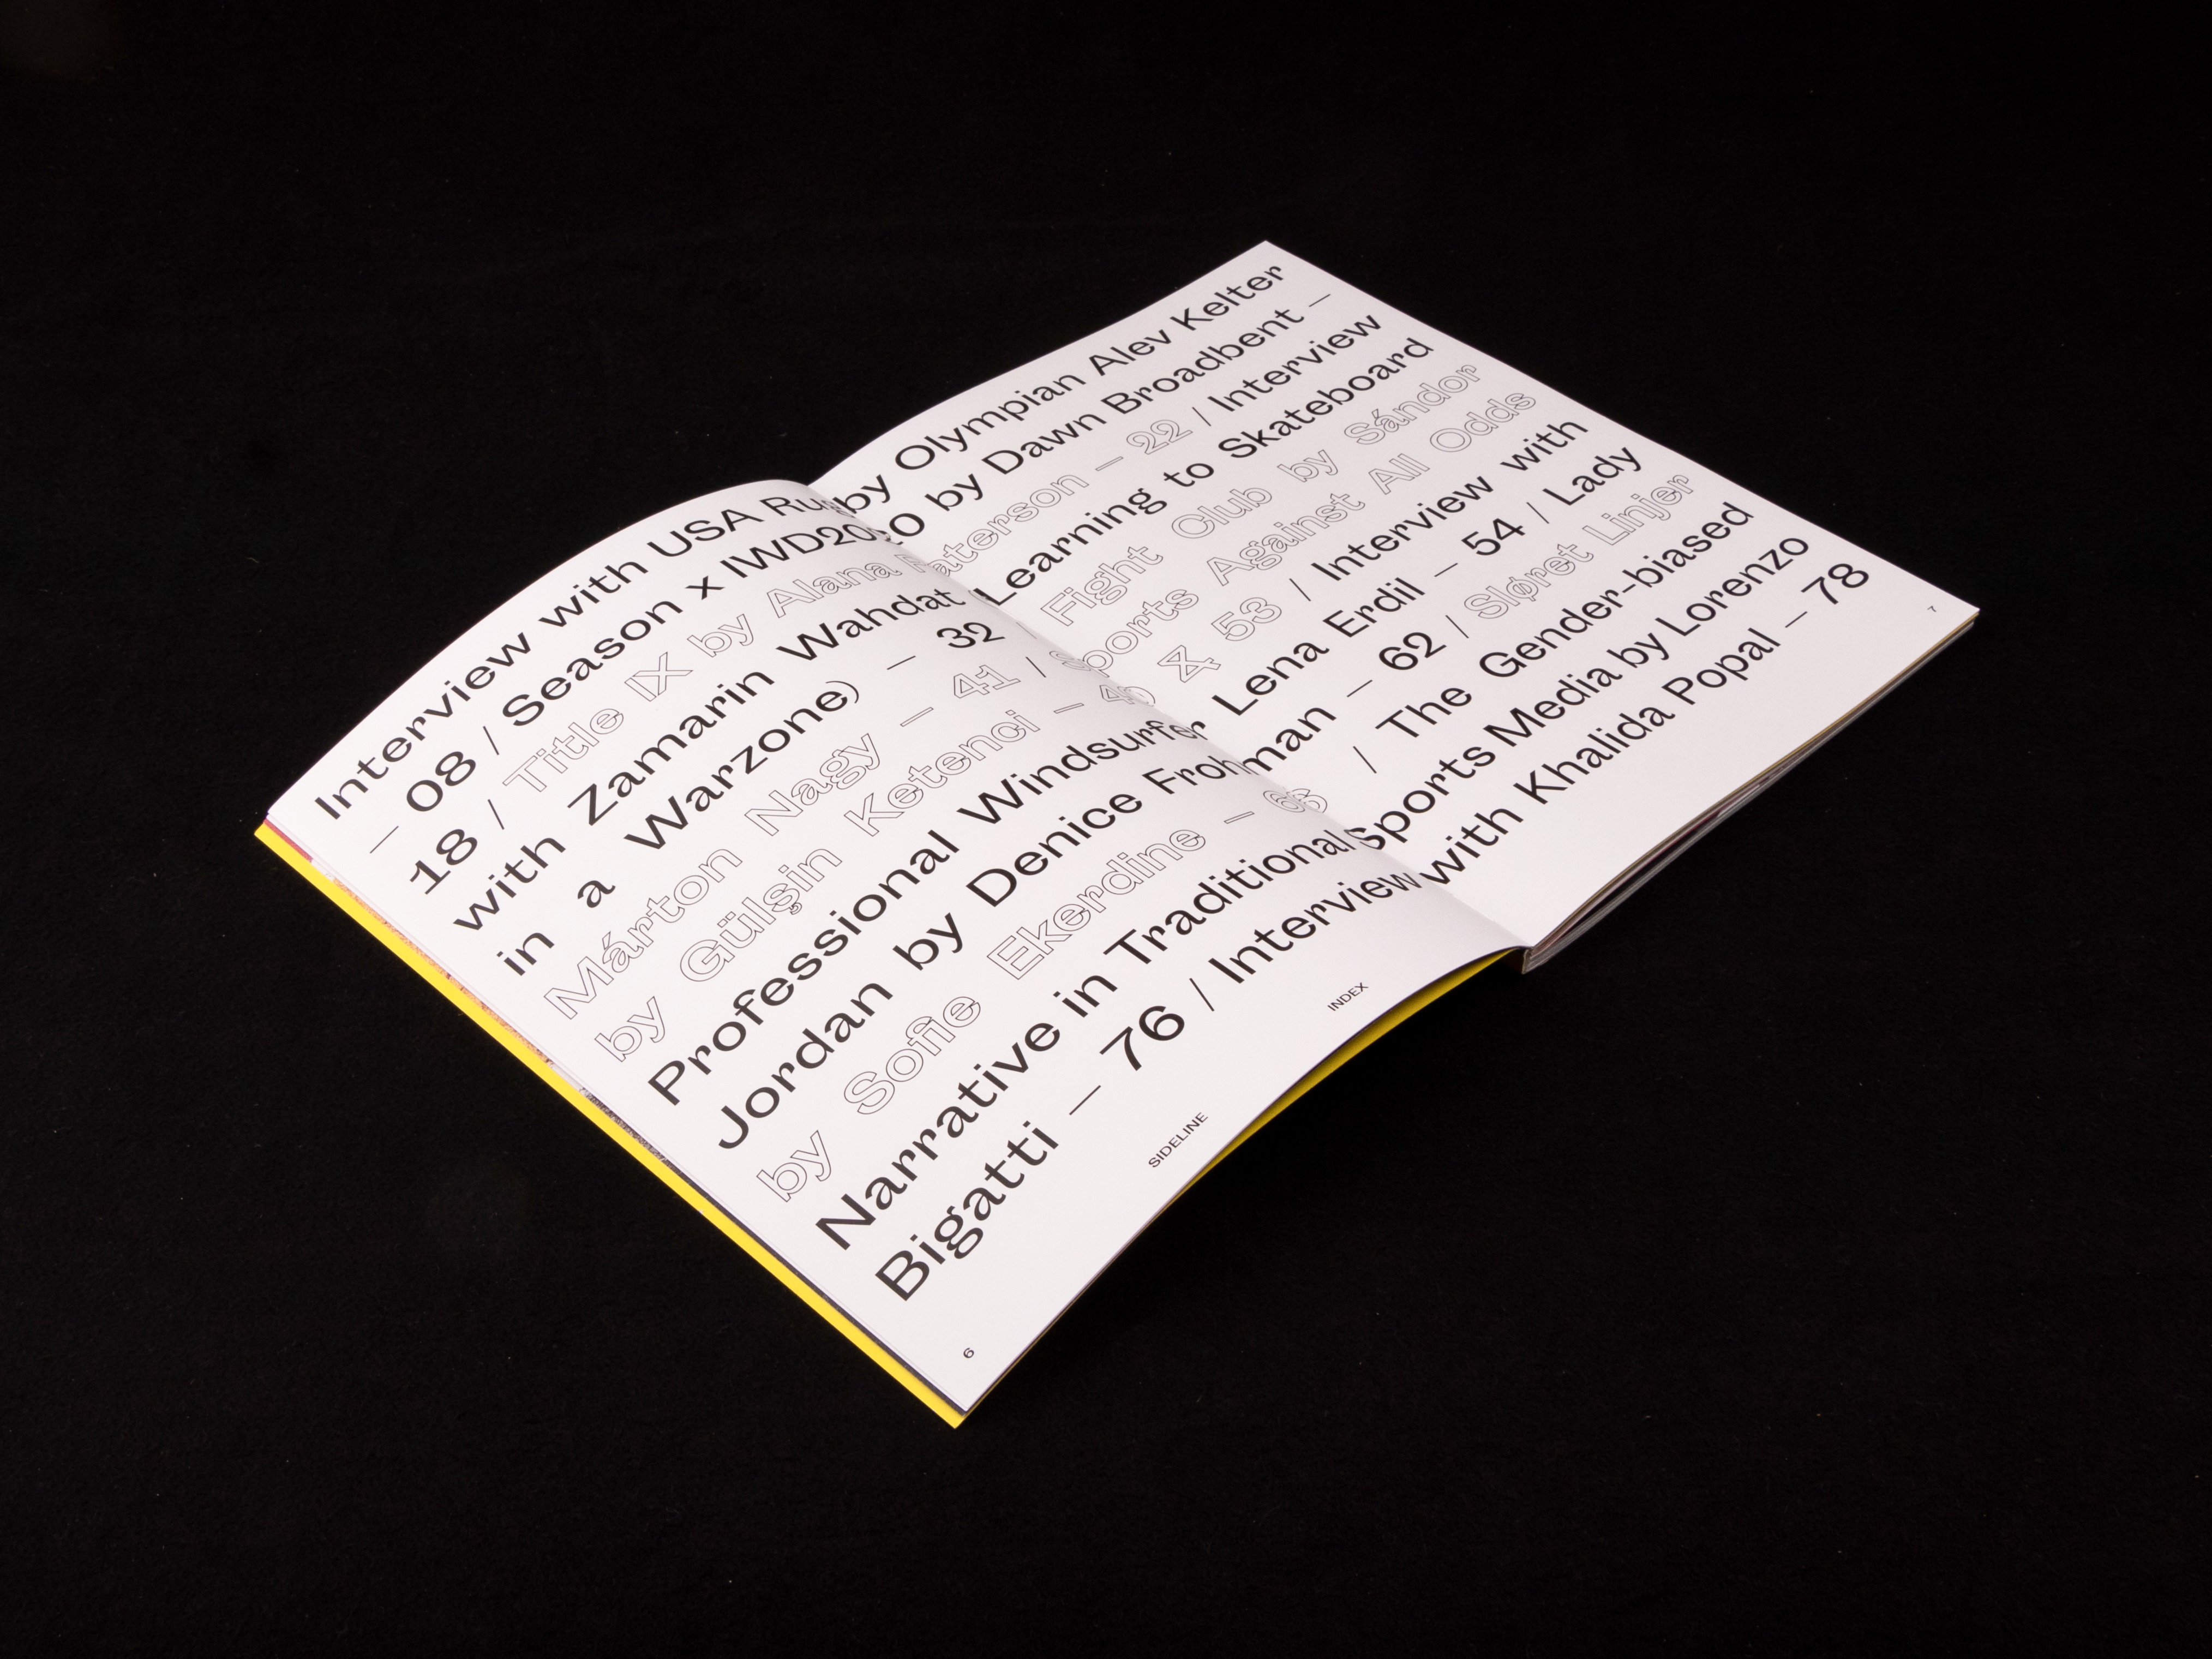 Interview with USA Rugby Olympian Alev Kelter
— 08 / Season x IWD2020 by Dawn Broadbent —
18 / Title IX by Alana Paterson — 22 / Interview
with Zamarin Wahdat (Learning to Skateboard
in a Warzone) — 32 / Fight Club by Sándor
Márton Nagy — 41 / Sports Against All Odds
by Gülşin Ketenci — 46 & 53 / Interview with
Professional Windsurfer Lena Erdil — 54 / Lady
Jordan by Denice Frohman — 62 / Sløret Linjer
by Sofie Ekerdine — 66 / The Gender-biased
Narrative in Traditional Sports Media by Lorenzo
Bigatti — 76 / Interview with Khalida Popal — 78
6
SIDELINE
INDEX
7